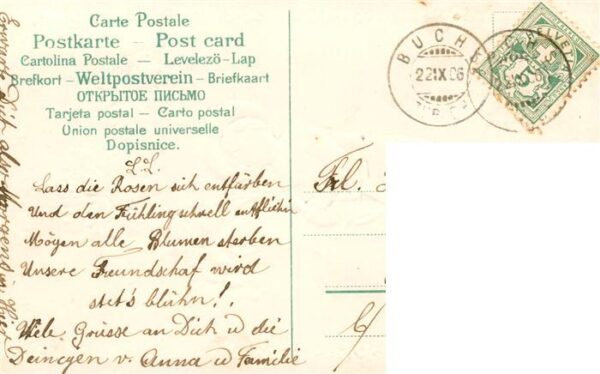 Carte Postale
Postkarte — Post card
Cartolina Postale — Levelezö-Lap
Brefkort - Weltpostverein - Briefkaart
ОТКРЫТОЕ ПИСЬМО
Tarjeta postal — Carto postal
Union postale universelle
Dopisnice.
L.L.
Lass die Rosen sich entfärben
Und den Frühling schnell entfliehn
Mögen alle Blumen sterben
Unsere Freundschaf wird
stet's blühn!.
Viele Grüsse an Dich u die
Deinigen v. Anna u Familie
BUCHS
22 IX 06
HELVETIA
Frl.